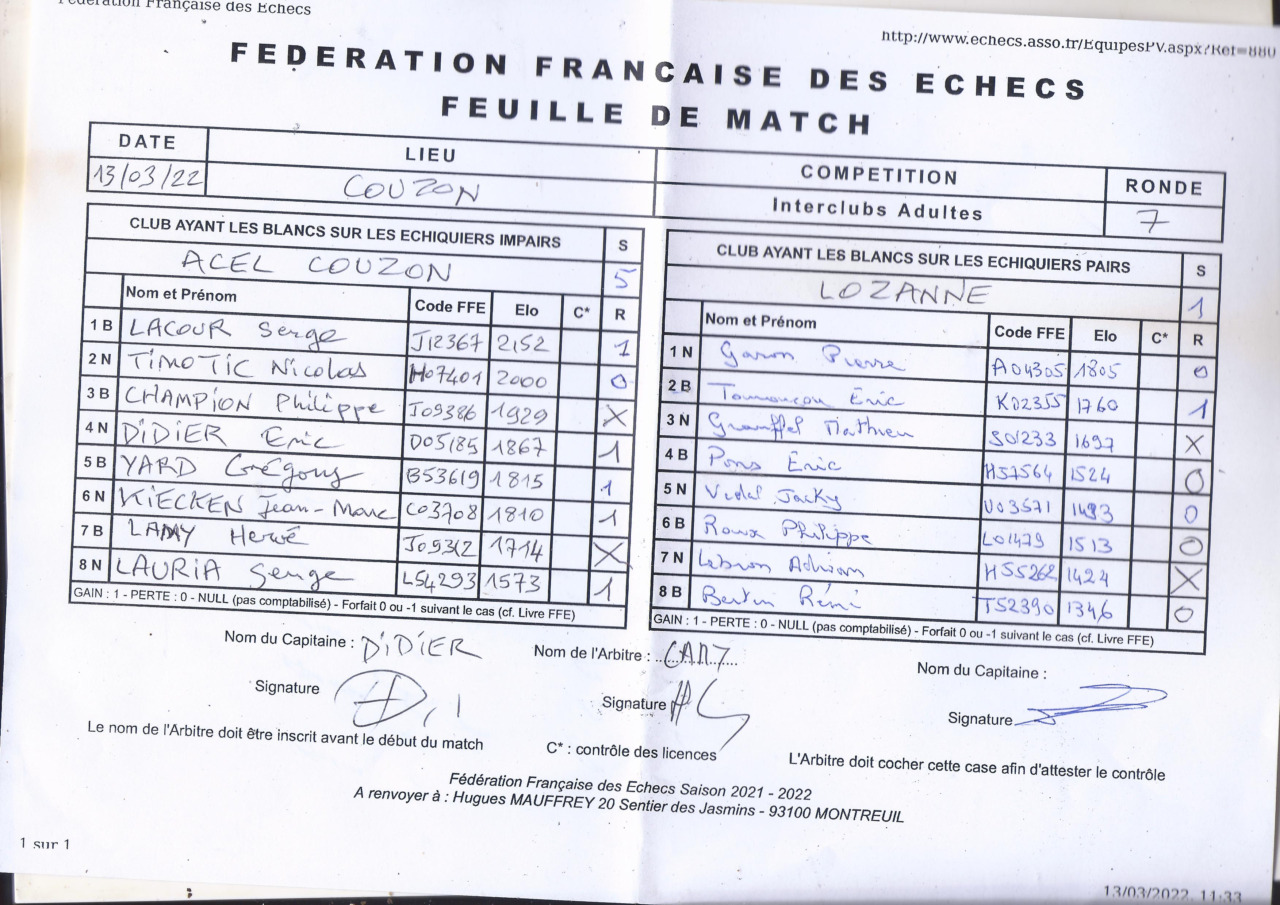 Fédération Française des Echecs
http://www.echecs.asso.fr/EquipesPV.aspx?Ref=880
FEDERATION FRANCAISE DES ECHECS
FEUILLE DE MATCH
DATE LIEU COMPETITION RONDE
13/03/22 COUZON Interclubs Adultes 7
CLUB AYANT LES BLANCS SUR LES ECHIQUIERS IMPAIRS S
ACEL COUZON 5
Nom et Prénom Code FFE Elo C* R
1 B LACOUR Serge J12367 2152 1
2 N TIMOTIC Nicolas H07401 2000 0
3 B CHAMPION Philippe J09386 1929 X
4 N DIDIER Eric D05185 1867 1
5 B YARD Grégory B53619 1815 1
6 N KIECKEN Jean-Marc C03708 1810 1
7 B LAMY Hervé J09312 1714 X
8 N LAURIA Serge L54293 1573 1
GAIN : 1 - PERTE : 0 - NULL (pas comptabilisé) - Forfait 0 ou -1 suivant le cas (cf. Livre FFE)
CLUB AYANT LES BLANCS SUR LES ECHIQUIERS PAIRS S
LOZANNE 1
Nom et Prénom Code FFE Elo C* R
1 N Garon Pierre A04305 1805 0
2 B Éric K02355 1760 1
3 N Mathieu S01233 1697 X
4 B Pons Éric H57564 1524 0
5 N Vidal Jacky U03571 1493 0
6 B Roux Philippe L01479 1513 0
7 N Lebron Adrian H55262 1424 X
8 B Bertin Rémi T52390 1346 0
GAIN : 1 - PERTE : 0 - NULL (pas comptabilisé) - Forfait 0 ou -1 suivant le cas (cf. Livre FFE)
Nom du Capitaine : DIDIER Nom de l'Arbitre : Nom du Capitaine :
Signature Signature Signature
Le nom de l'Arbitre doit être inscrit avant le début du match C* : contrôle des licences L'Arbitre doit cocher cette case afin d'attester le contrôle
Fédération Française des Echecs Saison 2021 - 2022
A renvoyer à : Hugues MAUFFREY 20 Sentier des Jasmins - 93100 MONTREUIL
1 sur 1
13/03/2022, 11:33